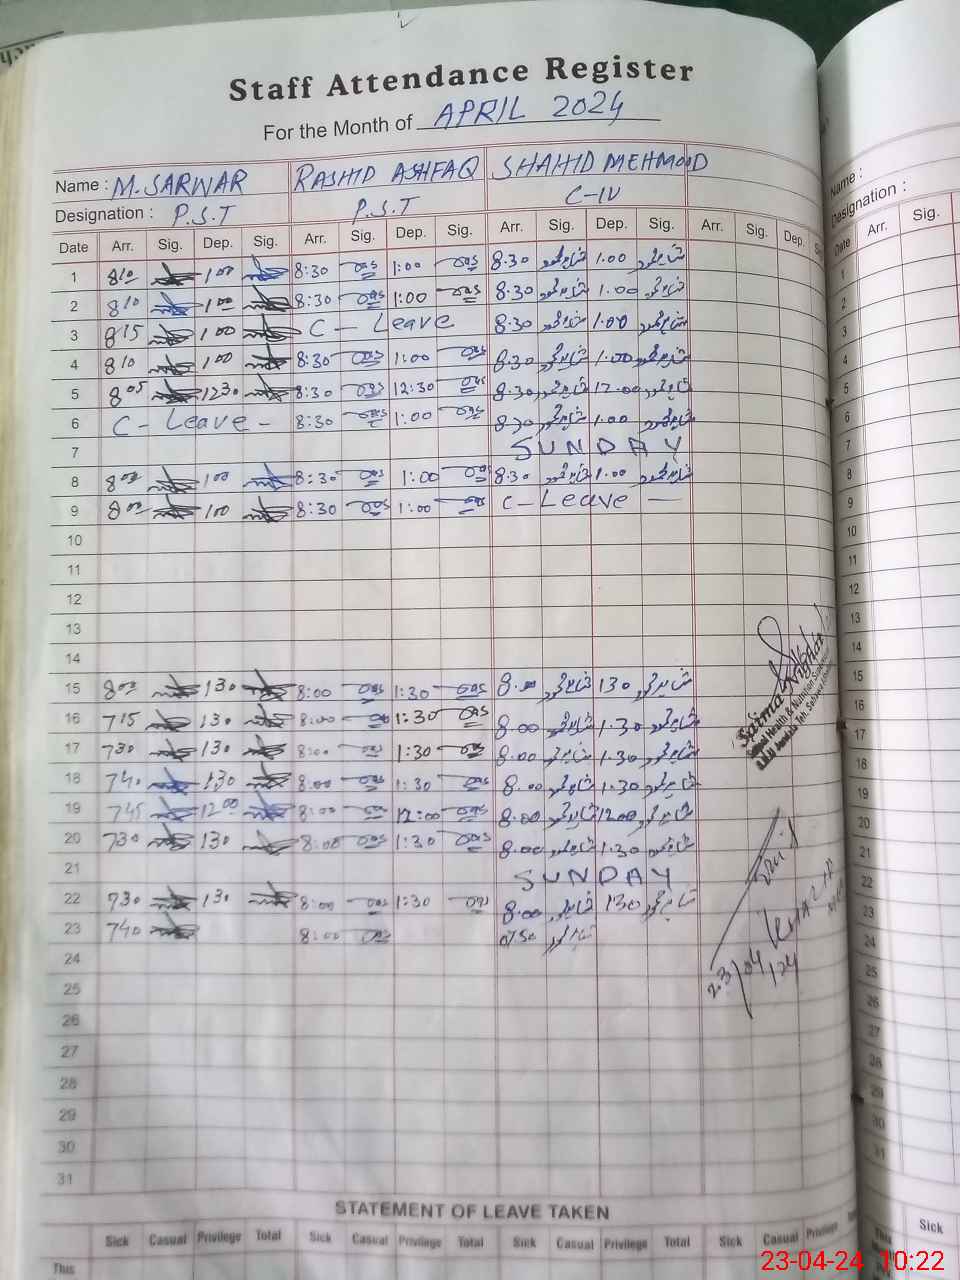 Staff Attendance Register
For the Month of APRIL 2024
Name : M. SARWAR RASHID ASHFAQ SHAHID MEHMOOD
Designation : P.S.T P.S.T C-IV
Date Arr. Sig. Dep. Sig. Arr. Sig. Dep. Sig. Arr. Sig. Dep. Sig. Arr. Sig. Dep.
1 8 10 1 00 8:30 1:00 8.30 شاہد محمود 1.00 شاہد محمود
2 8 10 1 00 8:30 1:00 8.30 شاہد محمود 1.00 شاہد محمود
3 8 15 1 00 C - Leave 8.30 شاہد محمود 1.00 شاہد محمود
4 8 10 1 00 8:30 1:00 8.30 شاہد محمود 1.00 شاہد محمود
5 8 05 12 30 8:30 12:30 8.30 شاہد محمود 12.00 شاہد محمود
6 C - Leave - 8:30 1:00 8.30 شاہد محمود 1.00 شاہد محمود
7 SUNDAY
8 8 00 1 00 8:30 1:00 8.30 شاہد محمود 1.00 شاہد محمود
9 8 00 1 00 8:30 1:00 C - Leave —
10
11
12
13
14
15 8 00 1 30 8:00 1:30 8.00 شاہد محمود 1 30 شاہد محمود
16 7 15 1 30 8:00 1:30 8.00 شاہد محمود 1.30 شاہد محمود
17 7 30 1 30 8:00 1:30 8.00 شاہد محمود 1.30 شاہد محمود
18 7 40 1 30 8:00 1:30 8.00 شاہد محمود 1.30 شاہد محمود
19 7 45 12 00 8:00 12:00 8.00 شاہد محمود 12 00 شاہد محمود
20 7 30 1 30 8:00 1:30 8.00 شاہد محمود 1.30 شاہد محمود
21 SUNDAY
22 7 30 1 30 8:00 1:30 8.00 شاہد محمود 1 30 شاہد محمود
23 7 40 8:00 07 50 شاہد محمود
24
25
26
27
28
29
30
31
Saima
Health & Nutrition
23/04/24
STATEMENT OF LEAVE TAKEN
Sick Casual Privilege Total Sick Casual Privilege Total Sick Casual Privilege Total Sick Casual Privilege
This
Name :
Designation :
Date Arr. Sig.
1
2
3
4
5
6
7
8
9
10
11
12
13
14
15
16
17
18
19
20
21
22
23
24
25
26
27
28
29
30
31
Sick
This
23-04-24 10:22